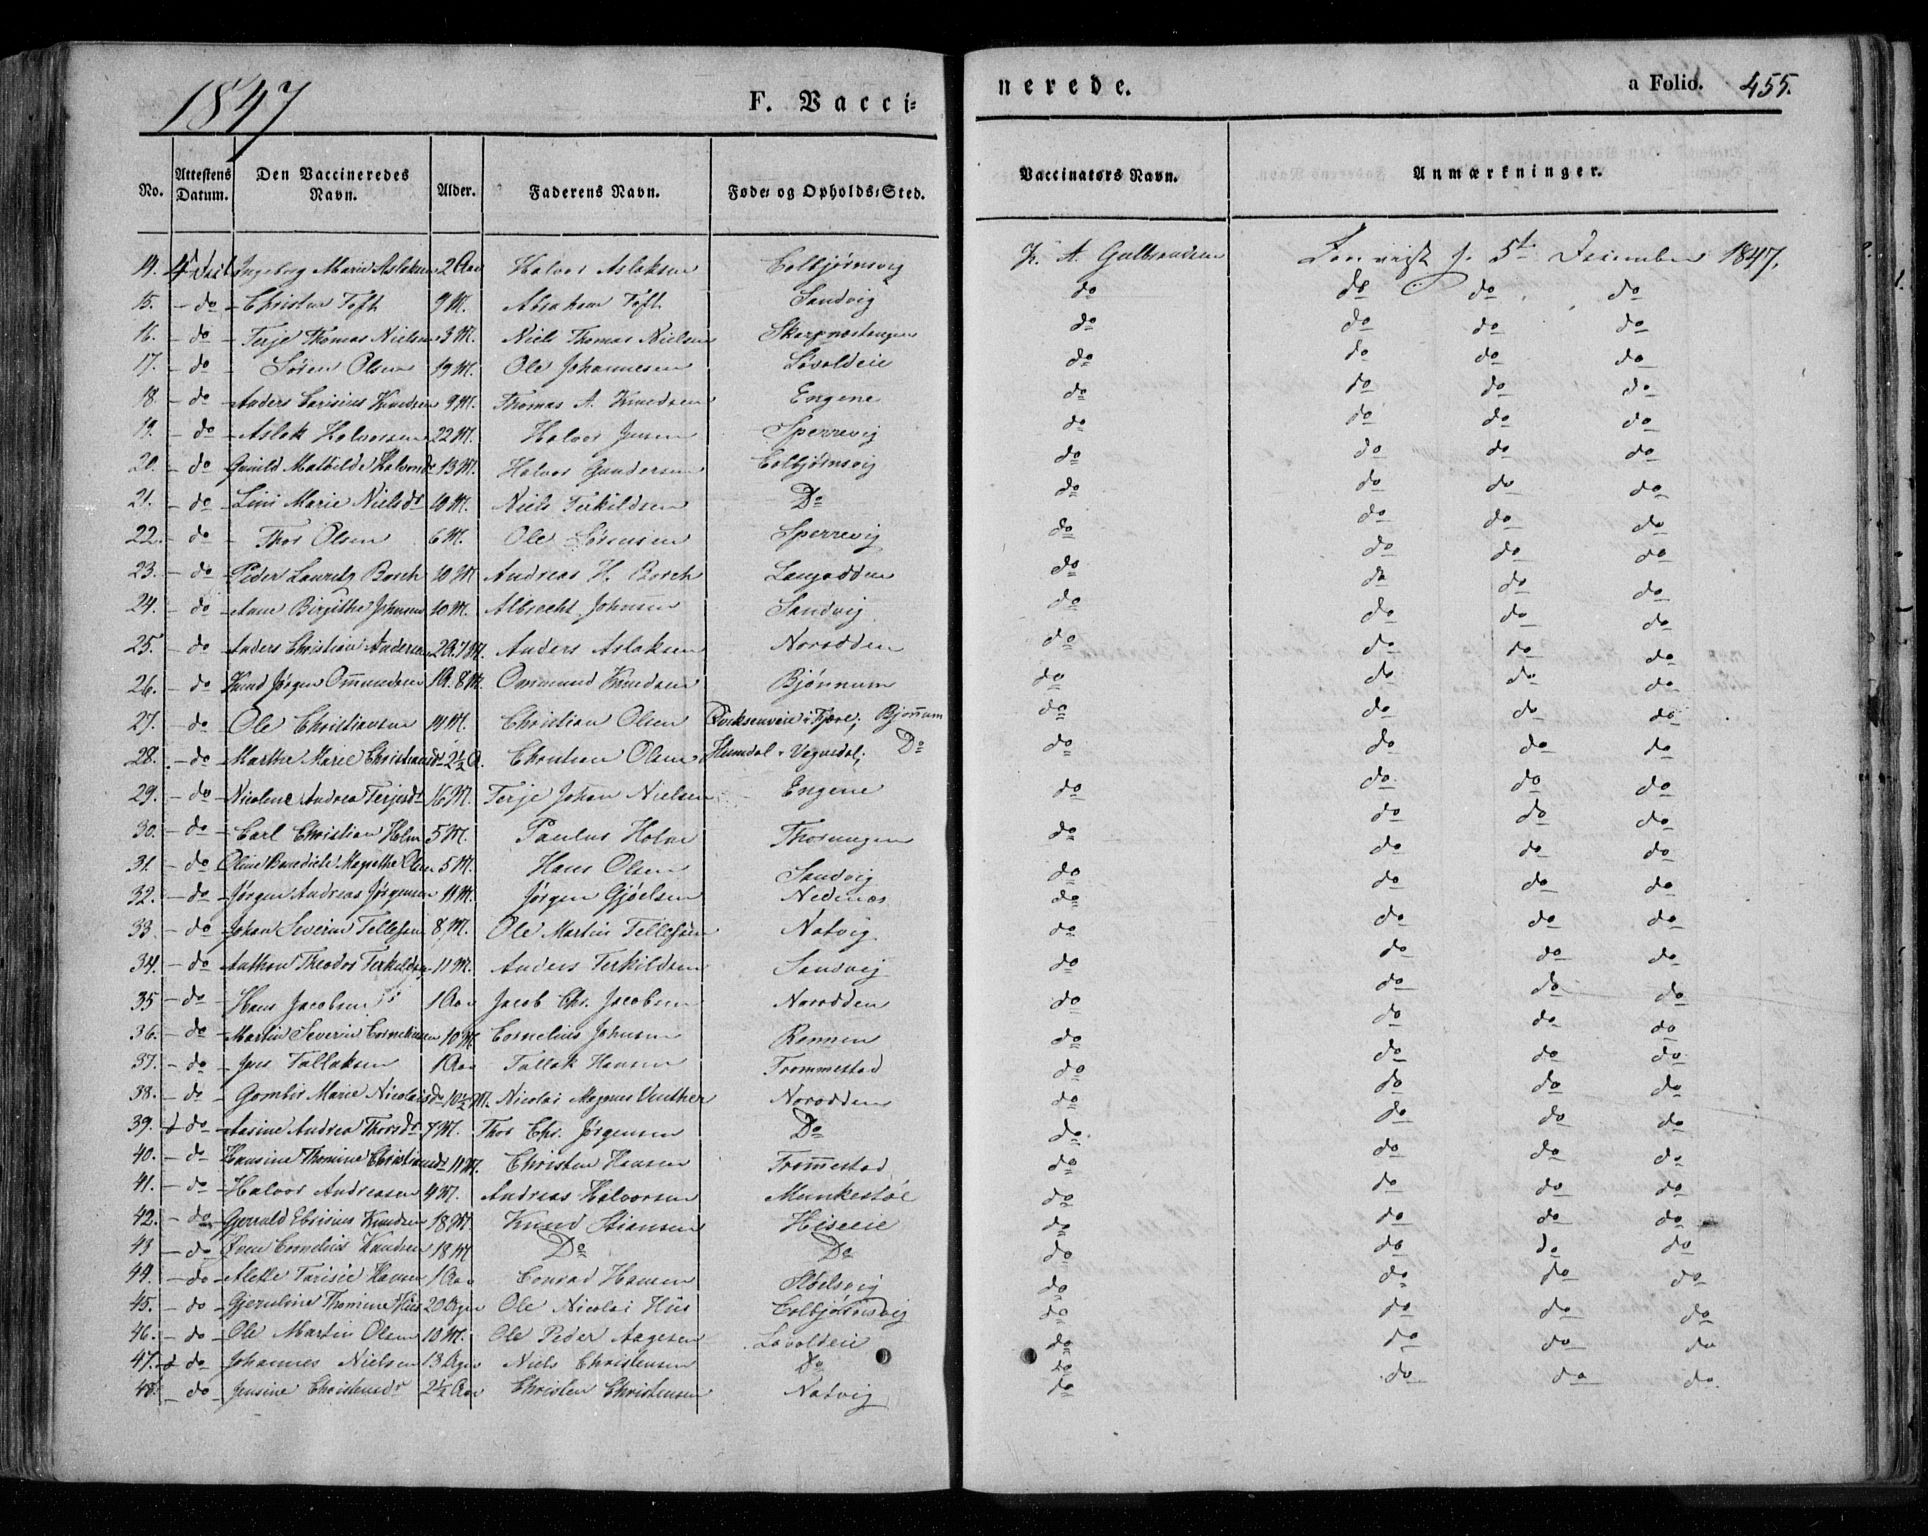 1847
F. Vacci=
nerede.
a Folio. 455.
No. Attestens Datum. Den Vaccineredes Navn. Alder. Faderens Navn. Føde= og Opholds=Sted. Vaccinators Navn. Anmærkninger.
14. Ingeborg Marie Aslaksen 2 Aar Halvor Aslaksen Colbjørnsvig A. Gulbrandsen 5te December 1847.
15. - do - Christen Toft 9 M. Abraham Toft Sandvig do do do do
16. - do - Terje Thomas Nielsen 3 M. Niels Thomas Nielsen Skarpnæstangen do do do do
17. - do - Søren Olsen 19 M. Ole Johannesen Løvoldeie do do do do
18 - do - Anders Knudsen 9 M. Thomas A. Knudsen Engene do do do do
19. - do - Aslak Halvorsen 22 M. Halvor Jensen Sperrevig do do do do
20. - do Gunild Mathilde Halvorsdr 13 M. Halvor Gundersen Colbjørnsvig do do do do
21. - do - Marie Nielsdr 10 M. Niels Terkildsen Do do do do do
22. - do - Thor Olsen 6 M. Ole Sørensen Sperrevig do do do do
23. - do - Peder Lauritz Borch 10 M Andreas H. Borch Langodden do do do do
24. - do - Anne Birgithe Johnsen 10 M. Albrecht Johnsen Sandvig do do do do
25. - do - Anders Christian Andersen 2 A. 7 M. Anders Aslaksen Norodden do do do do
26. - do Knud Jørgen Ommundsen 1 A. 8 M. Ommund Knudsen Bjønnum do do do do
27. - do - Ole Christiansen 14 M. Christian Olsen i Fjære; Bjønnum do do do do
28. - do - Marthe Marie Christiansdr 2½ A. Christian Olsen Do do do do do
29. - do - Nicoline Andrea Terjesdr 16 M. Terje Johan Nielsen Engene do do do do
30. - do - Carl Christian Holm 5 M. Paulus Holm Thorungen do do do do
31. - do Olsen 5 M. Hans Olsen Sandvig do do do do
32. - do - Jørgen Andreas Jørgensen 11 M. Jørgen Gjøelsen Nedenæs do do do do
33. - do - Johan Severin Tellefsen 8 M. Ole Martin Tellefsen Natvig do do do do
34. - do Anthon Theodor Terkildsen 11 M. Anders Terkildsen Sandvig do do do do
35 - do - Hans Jacobsen 1 Aar Jacob Chr. Jacobsen Norodden do do do do
36. - do - Martin Severin Corneliusen 10 M. Cornelius Johnsen Rønnen do do do do
37. - do - Jens Tallaksen 1 Aar Tallak Hansen Frommestad do do do do
38. - do Marie Nicolaisdr 10½ M. Nicolai Magnus Norodden do do do do
39. do - Aasine Andrea Thorsdr 7 M. Thor Chr. Jørgensen Do do do do do
40. - do Hansine Thomine Christiansdr 11 M. Christen Hansen Frommestad do do do do
41. - do - Halvor Andreasen 4 M. Andreas Halvorsen Munkestøl do do do do
42. - do Knudsen 18 M Knud Stiansen Hiseeie do do do do
43 - do - Cornelius Knudsen 18 M Do Do do do do do
44. - do - Hansen 1 Aar Conrad Hansen Stølsvig do do do do
45. - do Thomine Hiis 20 Aar Ole Nicolai Hiis Colbjørnsvig do do do do
46. - do - Ole Martin Olsen 10 M. Ole Peder Aagesen Løvoldeie do do do do
47. do - Johannes Nielsen 13 Aar Niels Christensen Do do do do do
48. - do Jensine Christensdr 2½ Aar Christen Christensen Natvig do do do do